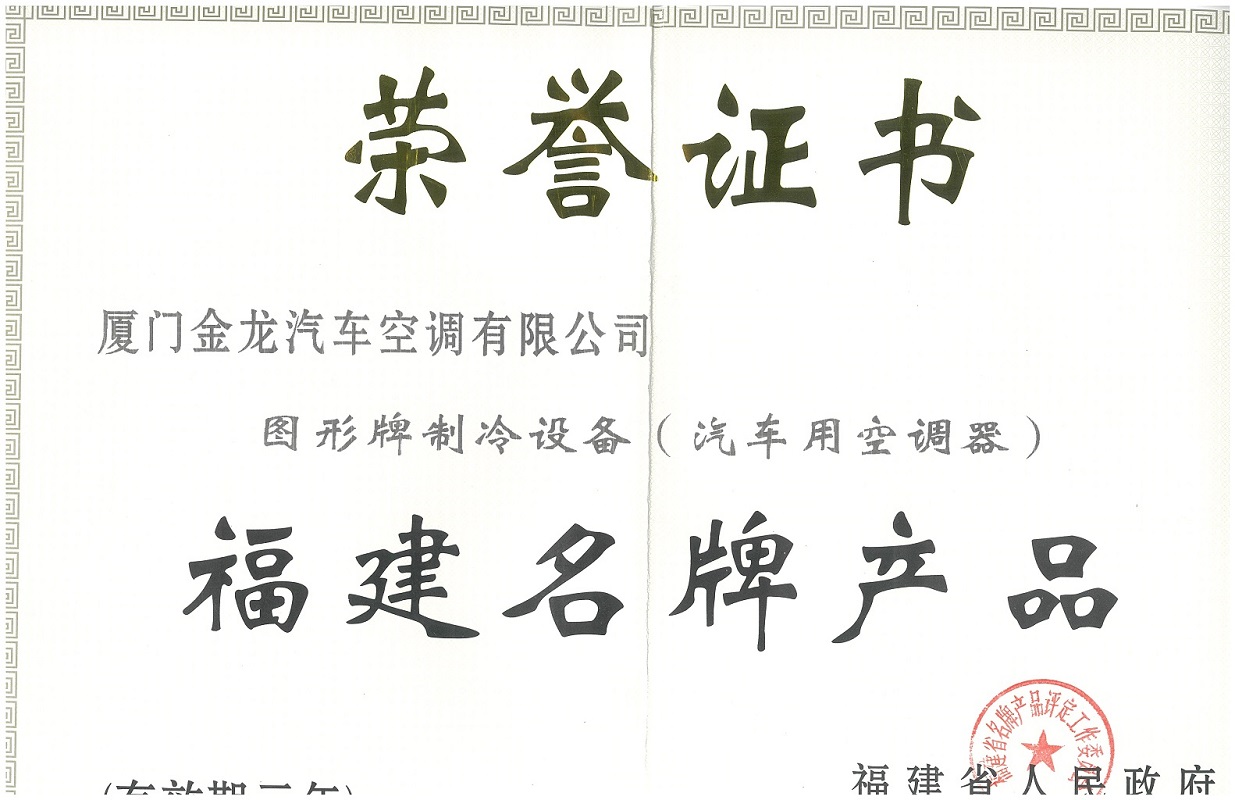 荣誉证书
厦门金龙汽车空调有限公司
图形牌制冷设备（汽车用空调器）
福建名牌产品
福建省名牌产品评定工作委
(有效期三年)
福建省人民政府